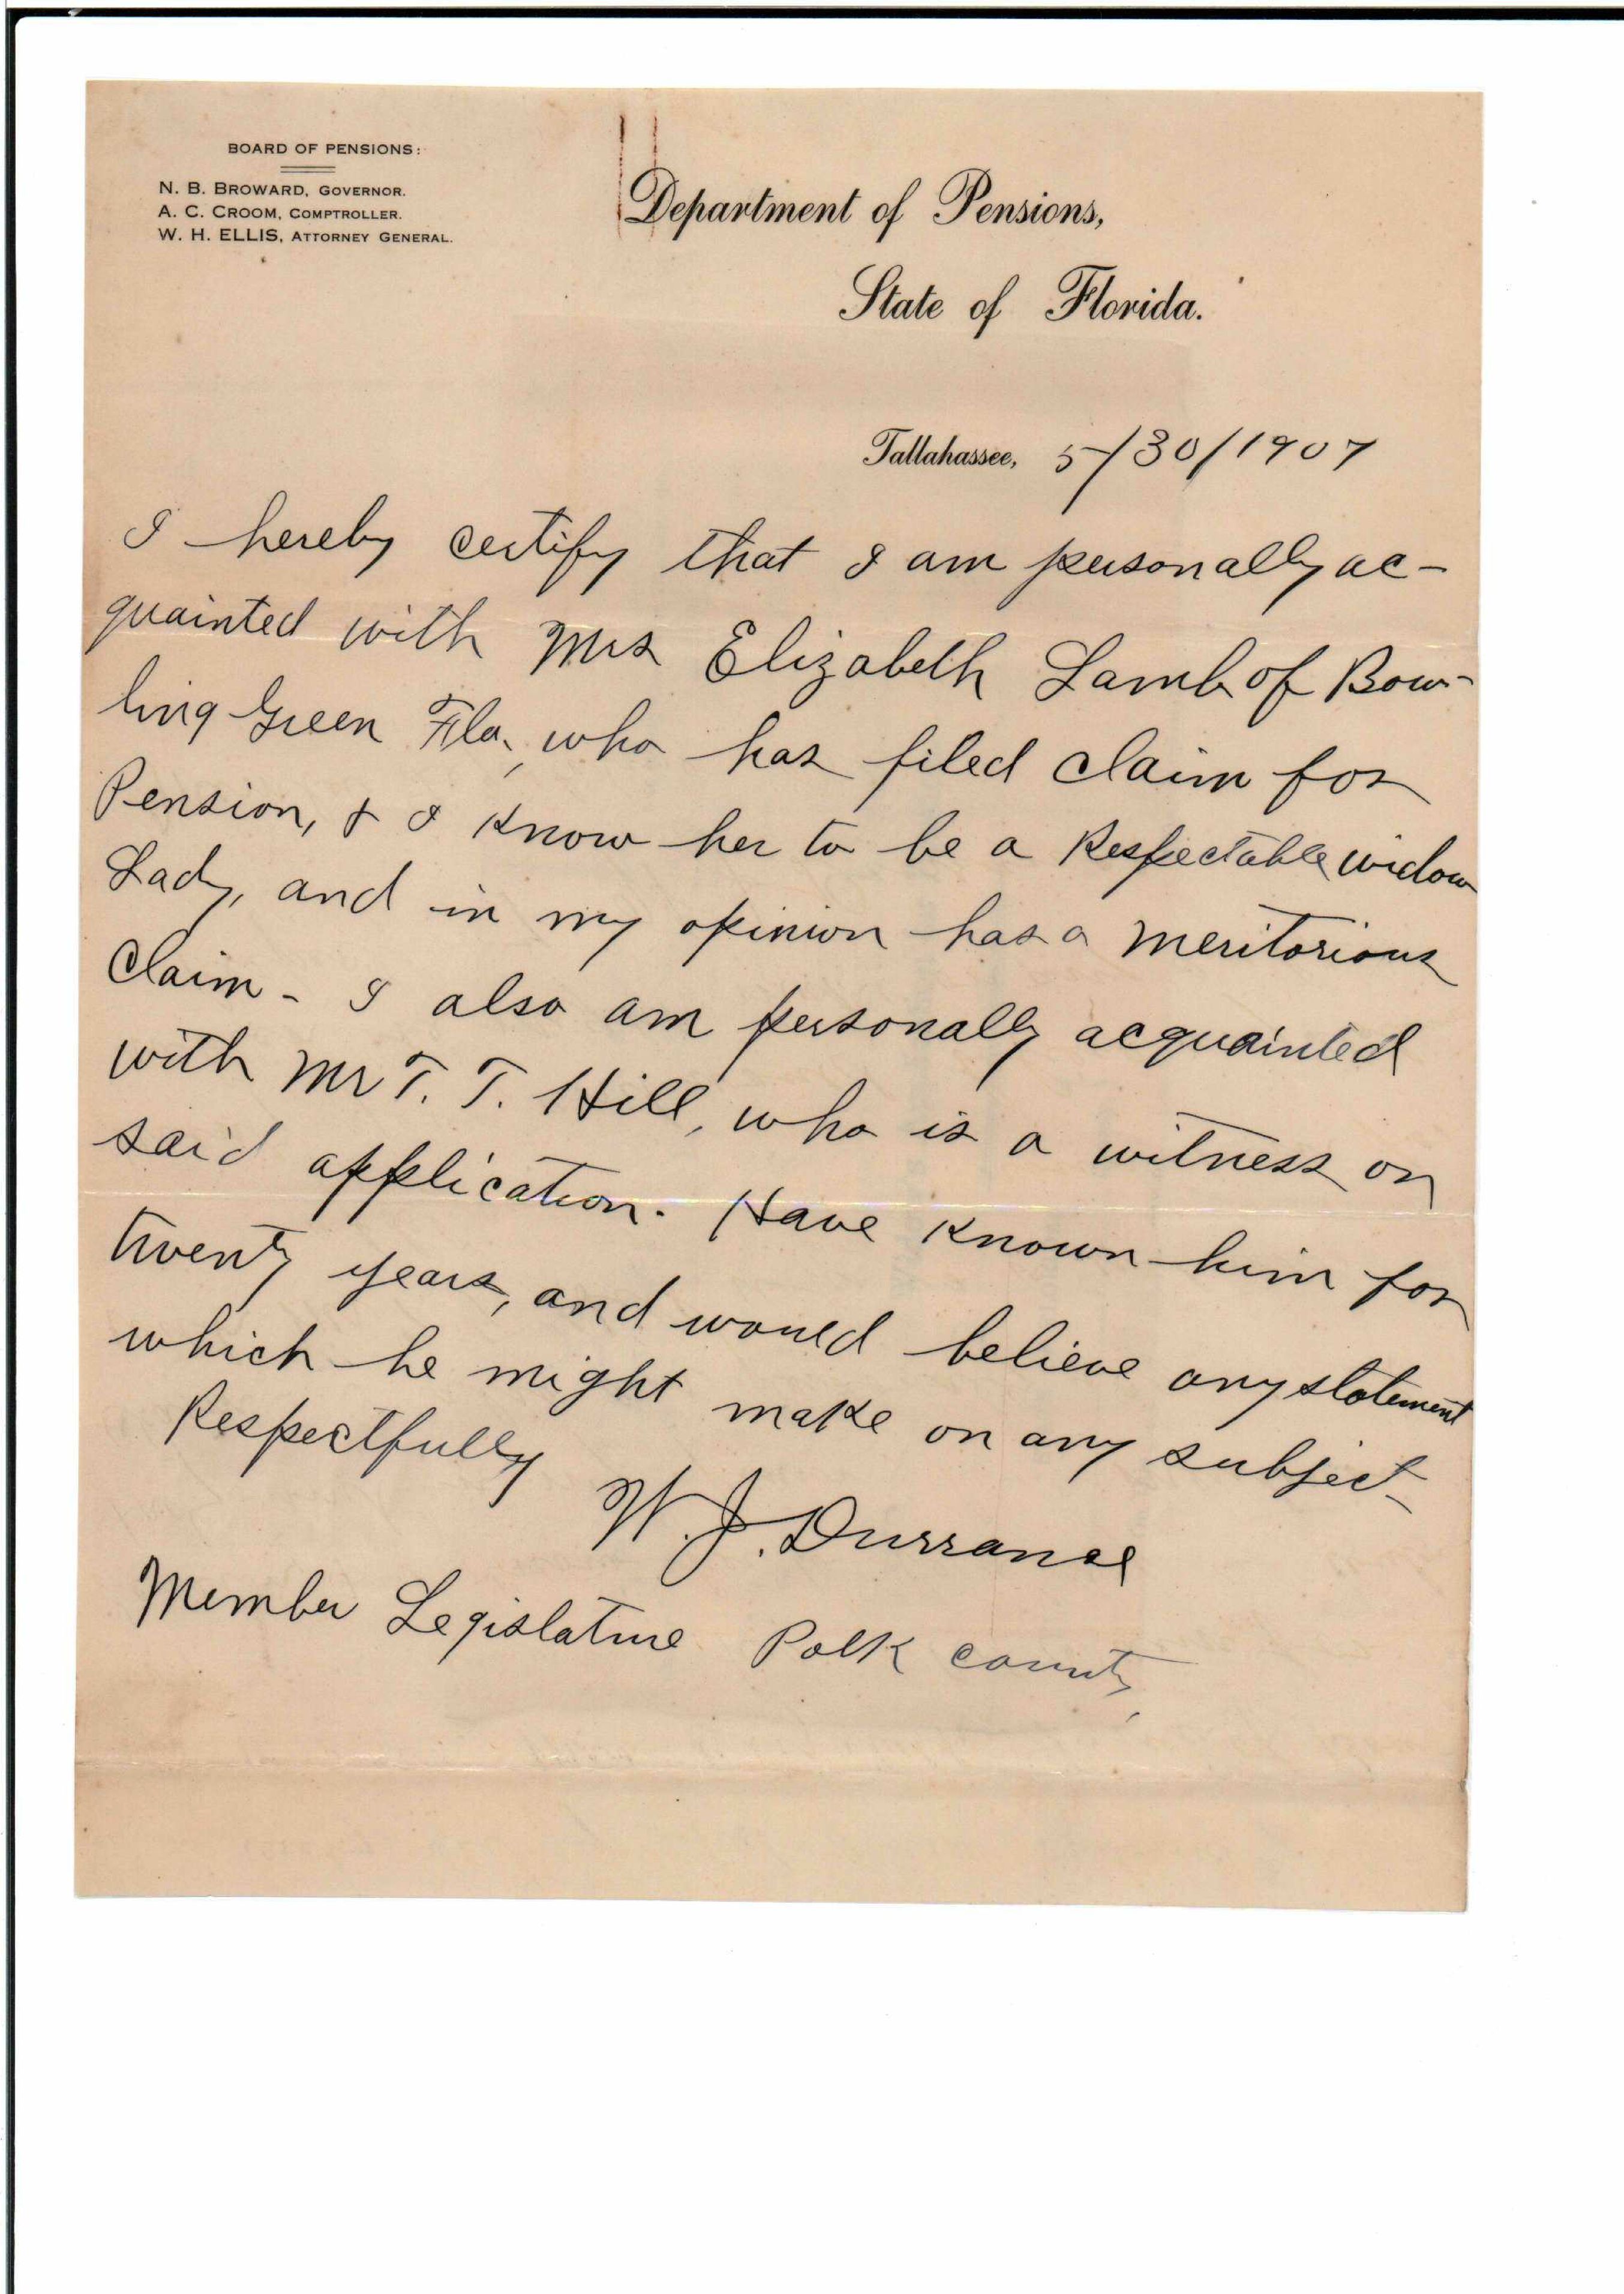 BOARD OF PENSIONS:
N. B. BROWARD, GOVERNOR.
A. C. CROOM, COMPTROLLER.
W. H. ELLIS, ATTORNEY GENERAL.
Department of Pensions,
State of Florida.
Tallahassee, 5/30/1907
I hereby certify that I am personally ac-
quainted with Mrs Elizabeth Lamb of Bow-
ling Green Fla, who has filed claim for
Pension, & I know her to be a Respectable widow
Lady, and in my opinion has a meritorious
Claim - I also am personally acquainted
with Mr T. T. Hill, who is a witness on
said application. Have known him for
twenty years, and would believe any statement
which he might make on any subject -
Respectfully
W. J. Durrance
Member Legislature Polk County,